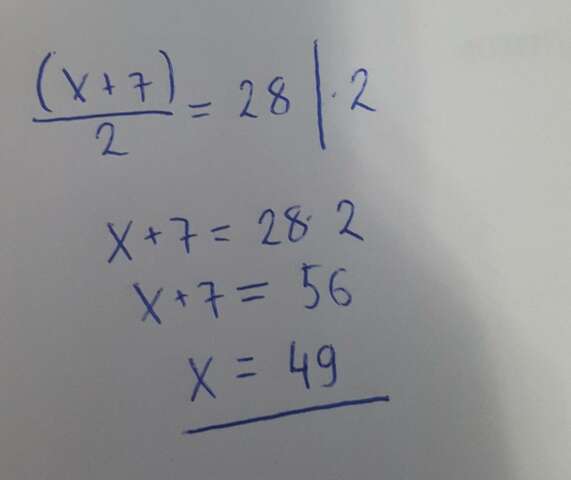 (x+7)/2 = 28 | · 2
x+7 = 28 · 2
x+7 = 56
x = 49